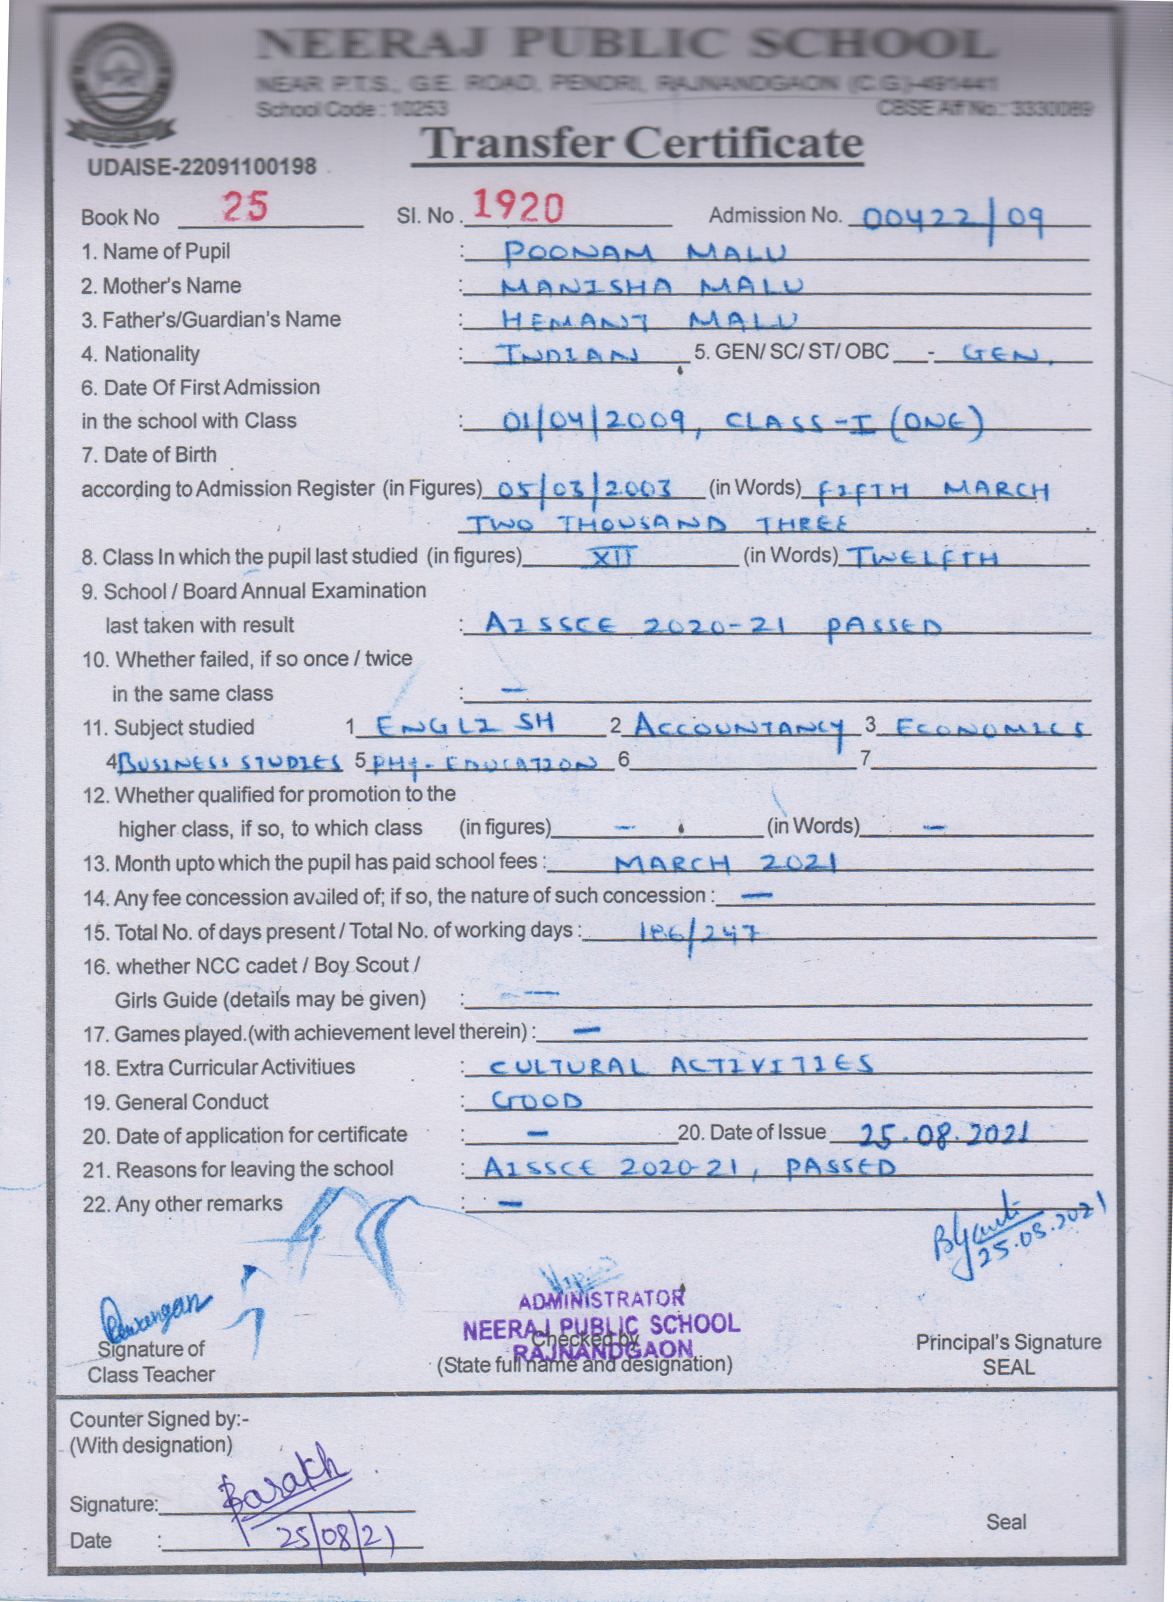 NEERAJ PUBLIC SCHOOL
NEAR P.T.S., G.E. ROAD, PENDRI, RAJNANDGAON (C.G.)-491441
School Code : 10253 CBSE Aff No.: 3330089
Transfer Certificate
UDAISE-22091100198
Book No 25 Sl. No. 1920 Admission No. 00422/09
1. Name of Pupil : POONAM MALU
2. Mother's Name : MANISHA MALU
3. Father's/Guardian's Name : HEMANT MALU
4. Nationality : INDIAN 5. GEN/ SC/ ST/ OBC - GEN.
6. Date Of First Admission
in the school with Class : 01/04/2009, CLASS-I (ONE)
7. Date of Birth
according to Admission Register (in Figures) 05/03/2003 (in Words) FIFTH MARCH
TWO THOUSAND THREE
8. Class In which the pupil last studied (in figures) XII (in Words) TWELFTH
9. School / Board Annual Examination
last taken with result : AISSCE 2020-21 PASSED
10. Whether failed, if so once / twice
in the same class : —
11. Subject studied 1 ENGLISH 2 ACCOUNTANCY 3 ECONOMICS
4 BUSINESS STUDIES 5 PHY- EDUCATION 6 7
12. Whether qualified for promotion to the
higher class, if so, to which class (in figures) — (in Words) —
13. Month upto which the pupil has paid school fees : MARCH 2021
14. Any fee concession availed of; if so, the nature of such concession : —
15. Total No. of days present / Total No. of working days : 186/247
16. whether NCC cadet / Boy Scout /
Girls Guide (details may be given) : —
17. Games played.(with achievement level therein) : —
18. Extra Curricular Activitiues : CULTURAL ACTIVITIES
19. General Conduct : GOOD
20. Date of application for certificate : — 20. Date of Issue 25.08.2021
21. Reasons for leaving the school : AISSCE 2020-21, PASSED
22. Any other remarks : —
25.08.2021
ADMINISTRATOR
NEERAJ PUBLIC SCHOOL
RAJNANDGAON
Signature of
Class Teacher
Checked by
(State full name and designation)
Principal's Signature
SEAL
Counter Signed by:-
(With designation)
Signature:
Date : 25/08/21
Seal